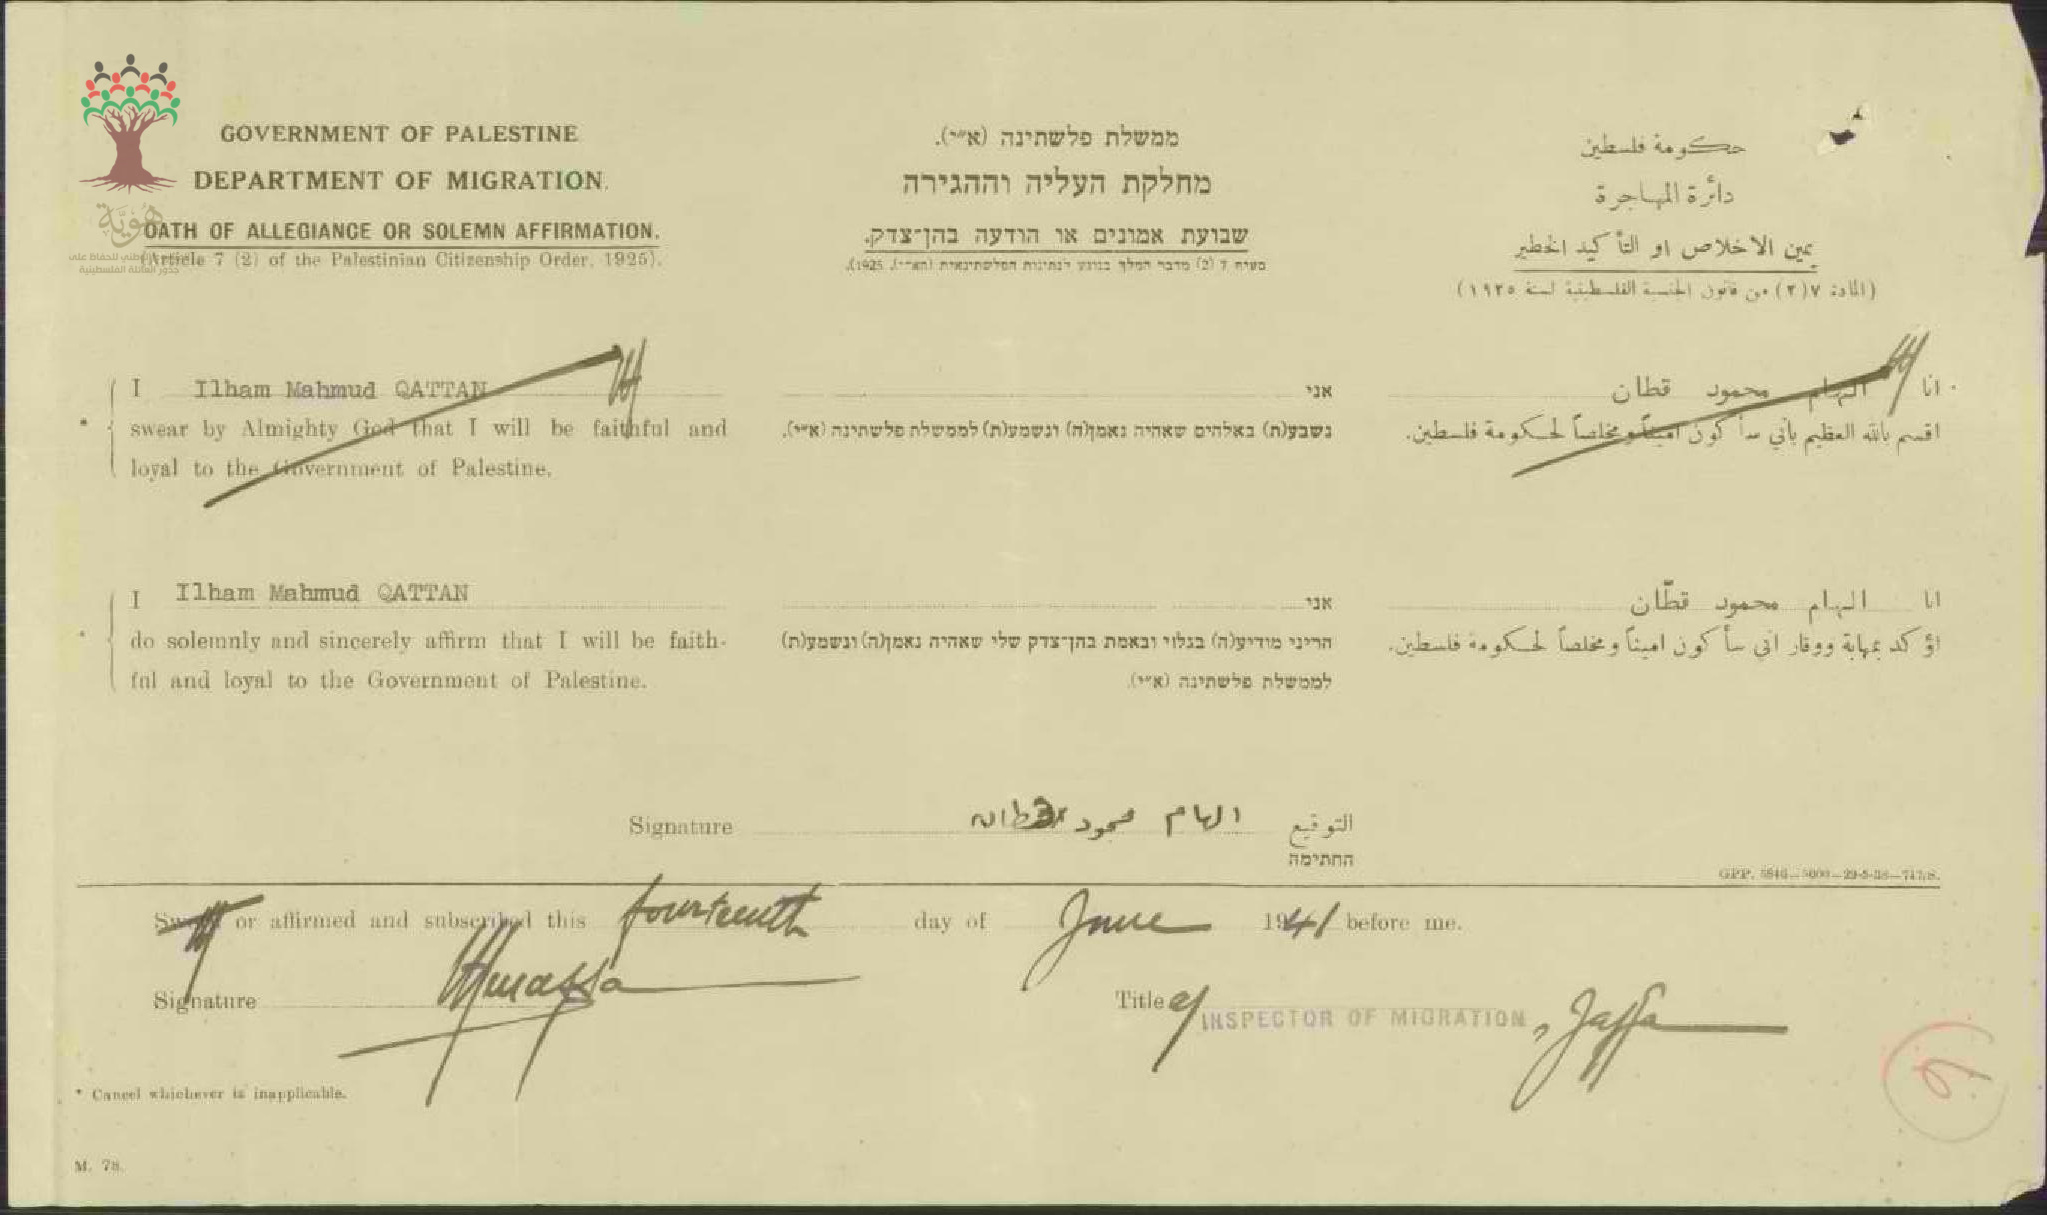 GOVERNMENT OF PALESTINE
DEPARTMENT OF MIGRATION.
OATH OF ALLEGIANCE OR SOLEMN AFFIRMATION.
(Article 7 (2) of the Palestinian Citizenship Order, 1925).
هُوِيَّة
ממשלת פלשתינה (א״י).
מחלקת העליה וההגירה
שבועת אמונים או הודעה בהן־צדק.
حكومة فلسطين
دائرة المهاجرة
يمين الاخلاص او التأكيد الخطير
(المادة ٧(٢) من قانون الجنسية الفلسطينية لسنة ١٩٢٥)
I Ilham Mahmud QATTAN
swear by Almighty God that I will be faithful and
loyal to the Government of Palestine.
אני
נשבע(ת) באלהים שאהיה נאמן(ה) ונשמע(ת) לממשלת פלשתינה (א״י).
انا الهام محمود قطان
اقسم بالله العظيم بأني سأكون اميناً ومخلصاً لحكومة فلسطين.
I Ilham Mahmud QATTAN
do solemnly and sincerely affirm that I will be faith-
ful and loyal to the Government of Palestine.
אני
הריני מודיע(ה) בגלוי ובאמת בהן־צדק שלי שאהיה נאמן(ה) ונשמע(ת)
לממשלת פלשתינה (א״י).
انا الهام محمود قطّان
اؤكد بمهابة ووقار اني سأكون اميناً ومخلصاً لحكومة فلسطين.
Signature الهام محمود قطان التوقيع
החתימה
Sworn or affirmed and subscribed this fourteenth day of June 1941 before me.
Signature
Title a/ INSPECTOR OF MIGRATION, Jaffa
* Cancel whichever is inapplicable.
M. 78.